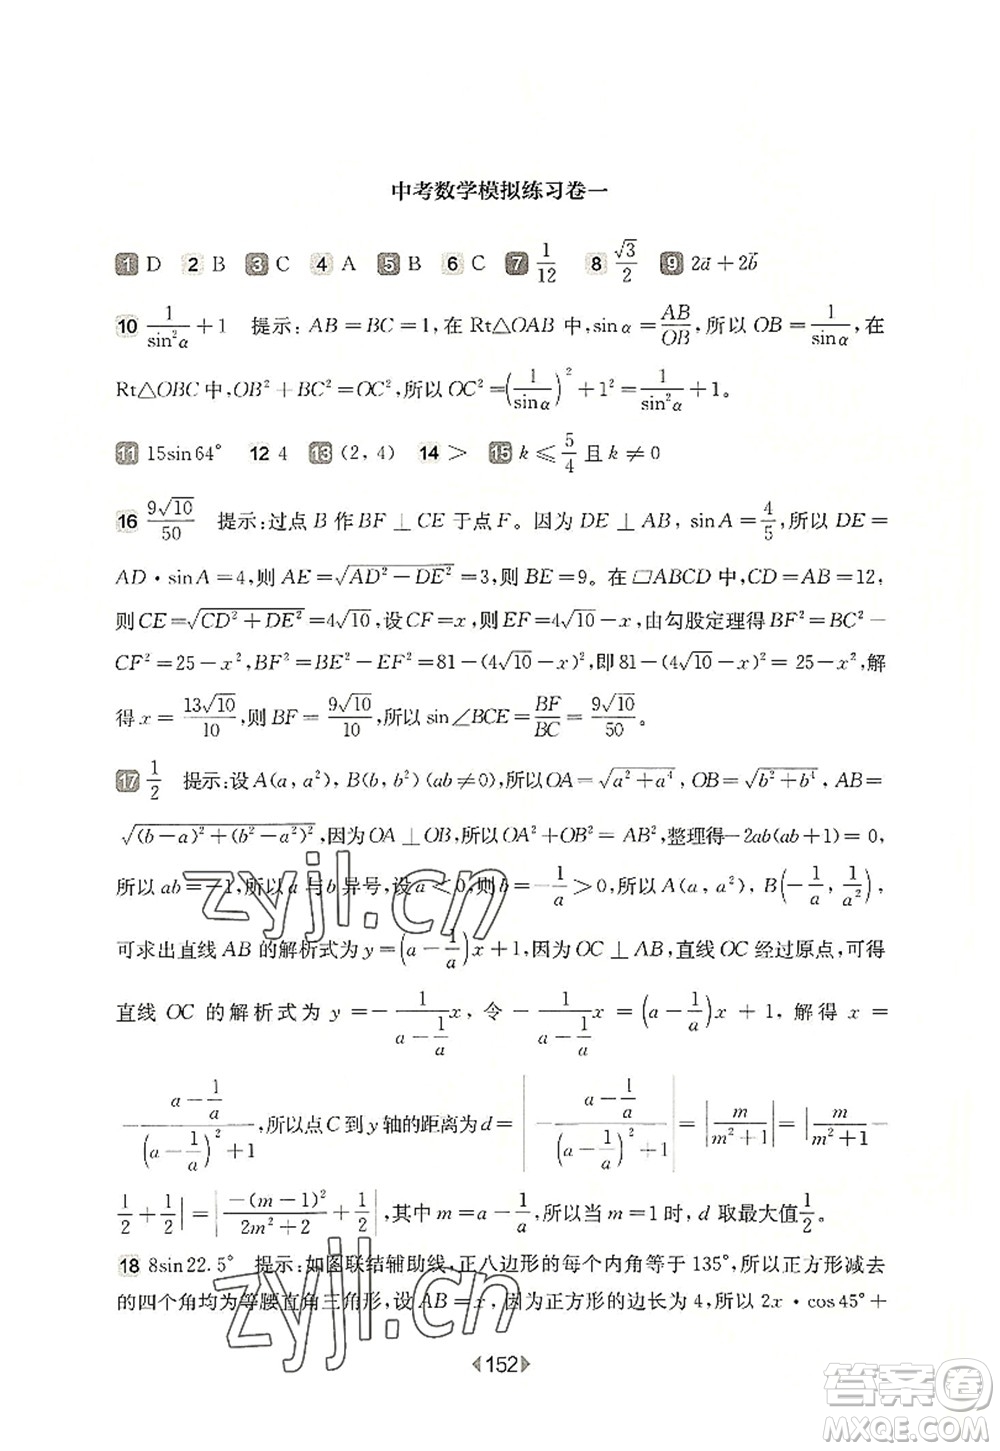 中考数学模拟练习卷一
1 D 2 B 3 C 4 A 5 B 6 C 7 1/12 8 √3/2 9 2a⃗+2b⃗
10 1/sin²α+1 提示:AB=BC=1,在 Rt△OAB 中,sinα=AB/OB,所以 OB=1/sinα,在
Rt△OBC 中,OB²+BC²=OC²,所以 OC²=(1/sinα)²+1²=1/sin²α+1。
11 15sin64° 12 4 13 (2,4) 14 > 15 k⩽5/4且 k≠0
16 9√10/50 提示:过点 B 作 BF⊥CE 于点 F。因为 DE⊥AB,sinA=4/5,所以 DE=
AD·sinA=4,则 AE=√(AD²-DE²)=3,则 BE=9。在▱ABCD 中,CD=AB=12,
则 CE=√(CD²+DE²)=4√10,设 CF=x,则 EF=4√10-x,由勾股定理得 BF²=BC²-
CF²=25-x²,BF²=BE²-EF²=81-(4√10-x)²,即 81-(4√10-x)²=25-x²,解
得 x=13√10/10,则 BF=9√10/10,所以 sin∠BCE=BF/BC=9√10/50。
17 1/2 提示:设 A(a,a²),B(b,b²)(ab≠0),所以 OA=√(a²+a⁴),OB=√(b²+b⁴),AB=
√((b-a)²+(b²-a²)²),因为 OA⊥OB,所以 OA²+OB²=AB²,整理得-2ab(ab+1)=0,
所以 ab=-1,所以 a 与 b 异号,设 a<0,则 b=-1/a>0,所以 A(a,a²),B(-1/a,1/a²),
可求出直线 AB 的解析式为 y=(a-1/a)x+1,因为 OC⊥AB,直线 OC 经过原点,可得
直线 OC 的解析式为 y=-1/(a-1/a)x,令 -1/(a-1/a)x=(a-1/a)x+1,解得 x=
-(a-1/a)/((a-1/a)²+1),所以点 C 到 y 轴的距离为 d=|-(a-1/a)/((a-1/a)²+1)|=|m/(m²+1)|=|m/(m²+1)-
1/2+1/2|=|-(m-1)²/(2m²+2)+1/2|,其中 m=a-1/a,所以当 m=1 时,d 取最大值1/2。
18 8sin22.5° 提示:如图联结辅助线,正八边形的每个内角等于 135°,所以正方形减去
的四个角均为等腰直角三角形,设 AB=x,因为正方形的边长为 4,所以 2x·cos45°+
152
zyjl.cn
zyjl.cn
答案圈
MXQE.COM